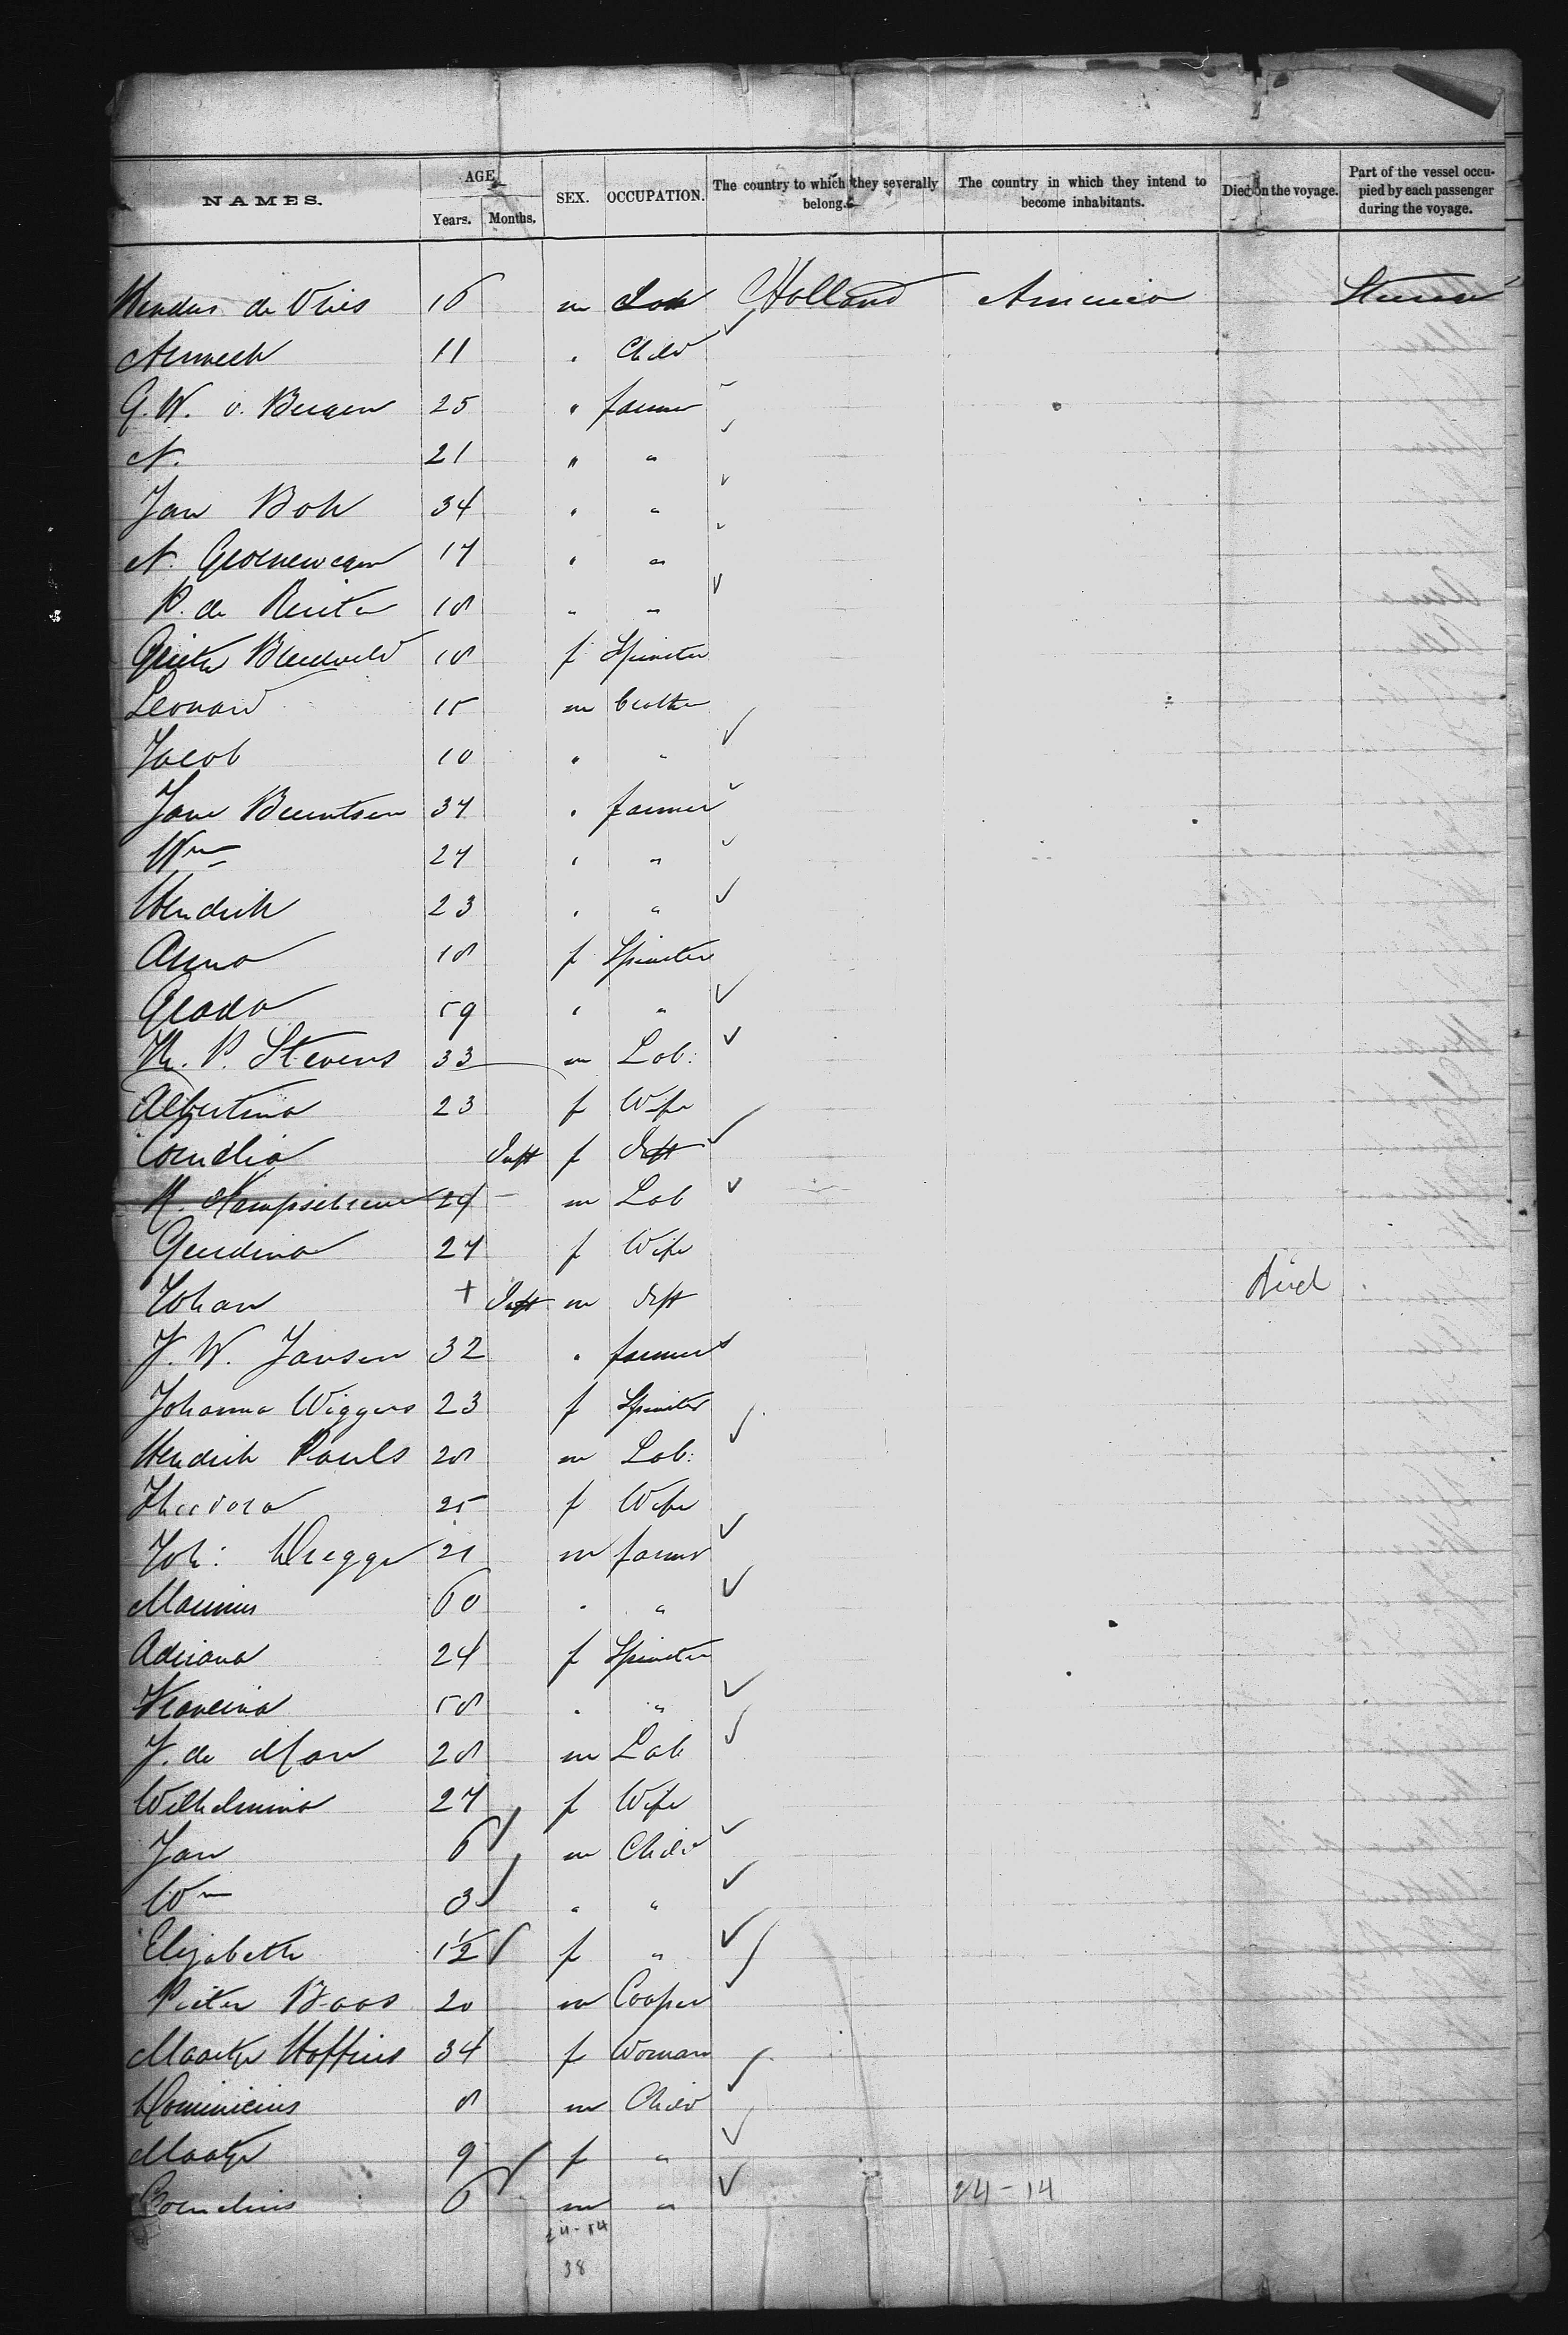 NAMES. AGE. Years. Months. SEX. OCCUPATION. The country to which they severally belong. The country in which they intend to become inhabitants. Died on the voyage. Part of the vessel occupied by each passenger during the voyage.
de Vries 16 m Holland America
11 " Child
G. W. v. Bergen 25 " farmer
N. 21 " "
Jan Bok 34 " "
N. Groenewegen 17 " "
P. de Ruiter 18 " "
18 f Spinster
Leonard 15 m brother
Jacob 10 " "
Jans Berntsen 37 " farmer
Wm 27 " "
Hendrik 23 " "
Anna 18 f Spinster
Grada 59 " "
P. Stevens 33 m Lab:
Albertina 23 f Wife
Cornelia Inft f Inft
29 m Lab
Gerdina 27 f Wife
Johan + Inft m Inft Died
J. W. Jansen 32 " farmer
Johanna Wiggers 23 f Spinster
Hendrik Pauls 28 m Lab:
Theodora 25 f Wife
Joh: Dregge 21 m farmer
Marinus 60 " "
Adriana 24 f Spinster
Francina 58 " "
J. de Man 28 m Lab
Wilhelmina 27 f Wife
Jan 6 m Child
Wm 3 " "
Elizabeth 1½ f "
Pieter Baas 20 m Cooper
Maatje Hoffius 34 f Woman
Dominicus 8 m Child
Maatje 9 f "
Cornelius 6 m " 24-14
24-14
38